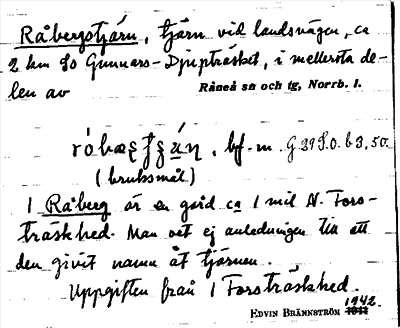 Råbergstjärn, tjärn vid landsvägen, ca
2 km So Gunnars-Djupträsket, i mellersta de-
len av Råneå sn och tg, Norrb. l.
bf. m. G 29 S.O. b 3, 50.
(bruksmål)
1 Råberg är en gård ca 1 mil N. Fors-
träskhed. Man vet ej anledningen till att
den givit namn åt tjärnen.
Uppgiften från 1 Forsträskhed.
Edvin Brännström 1942